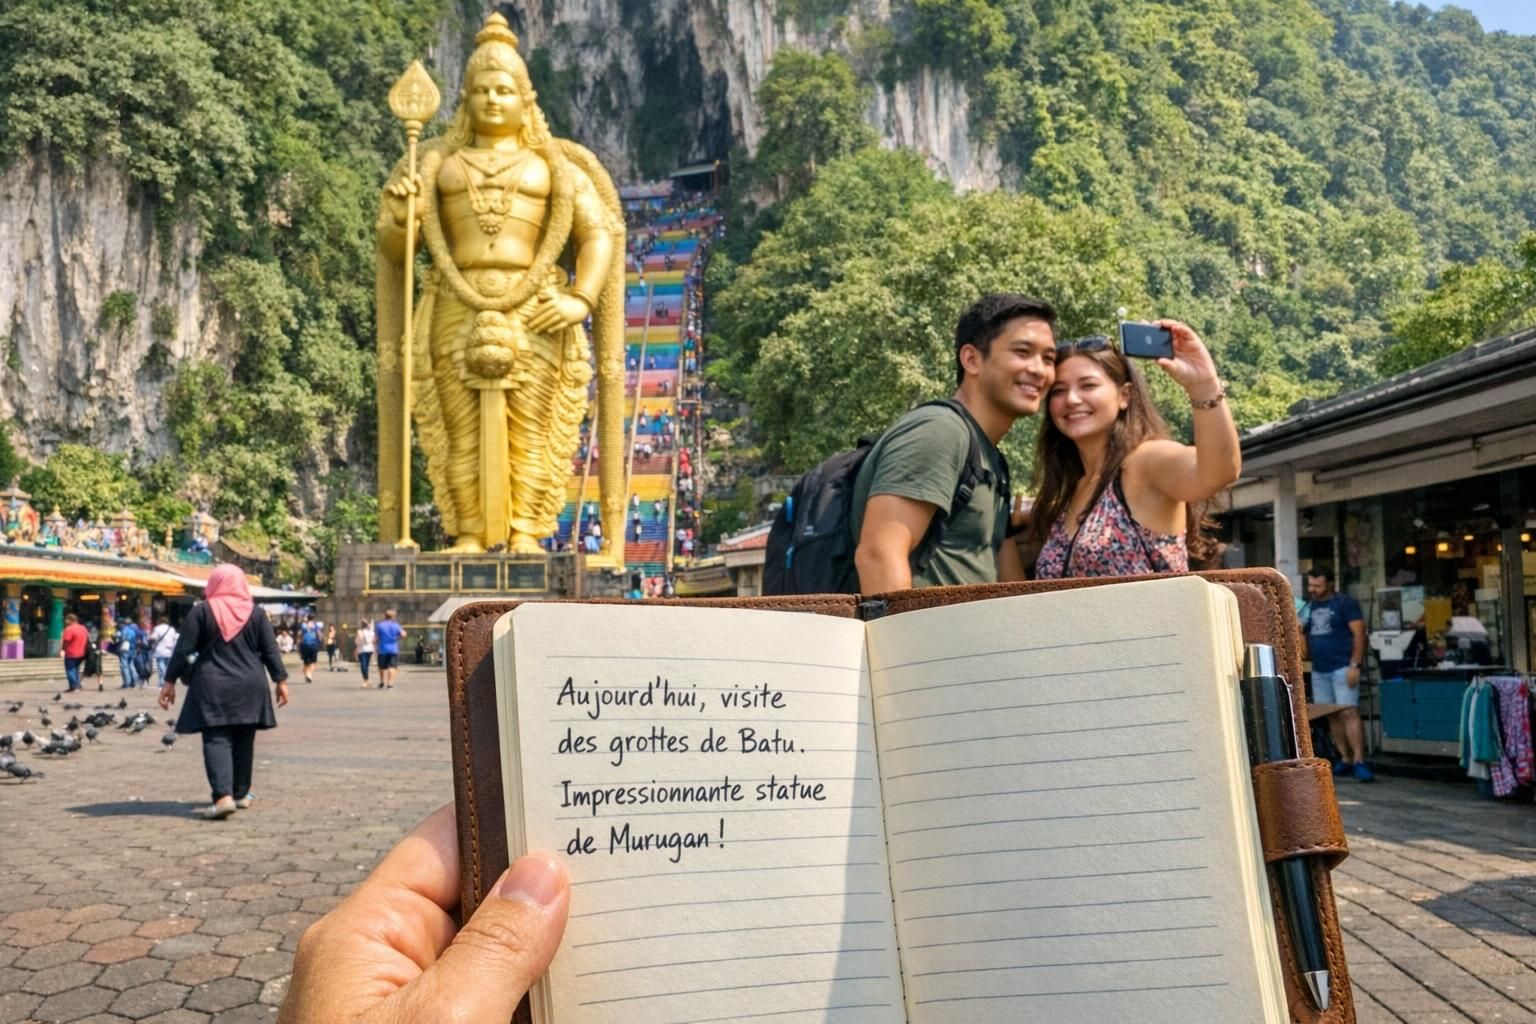 Aujourd'hui, visite
des grottes de Batu.
Impressionnante statue
de Murugan !